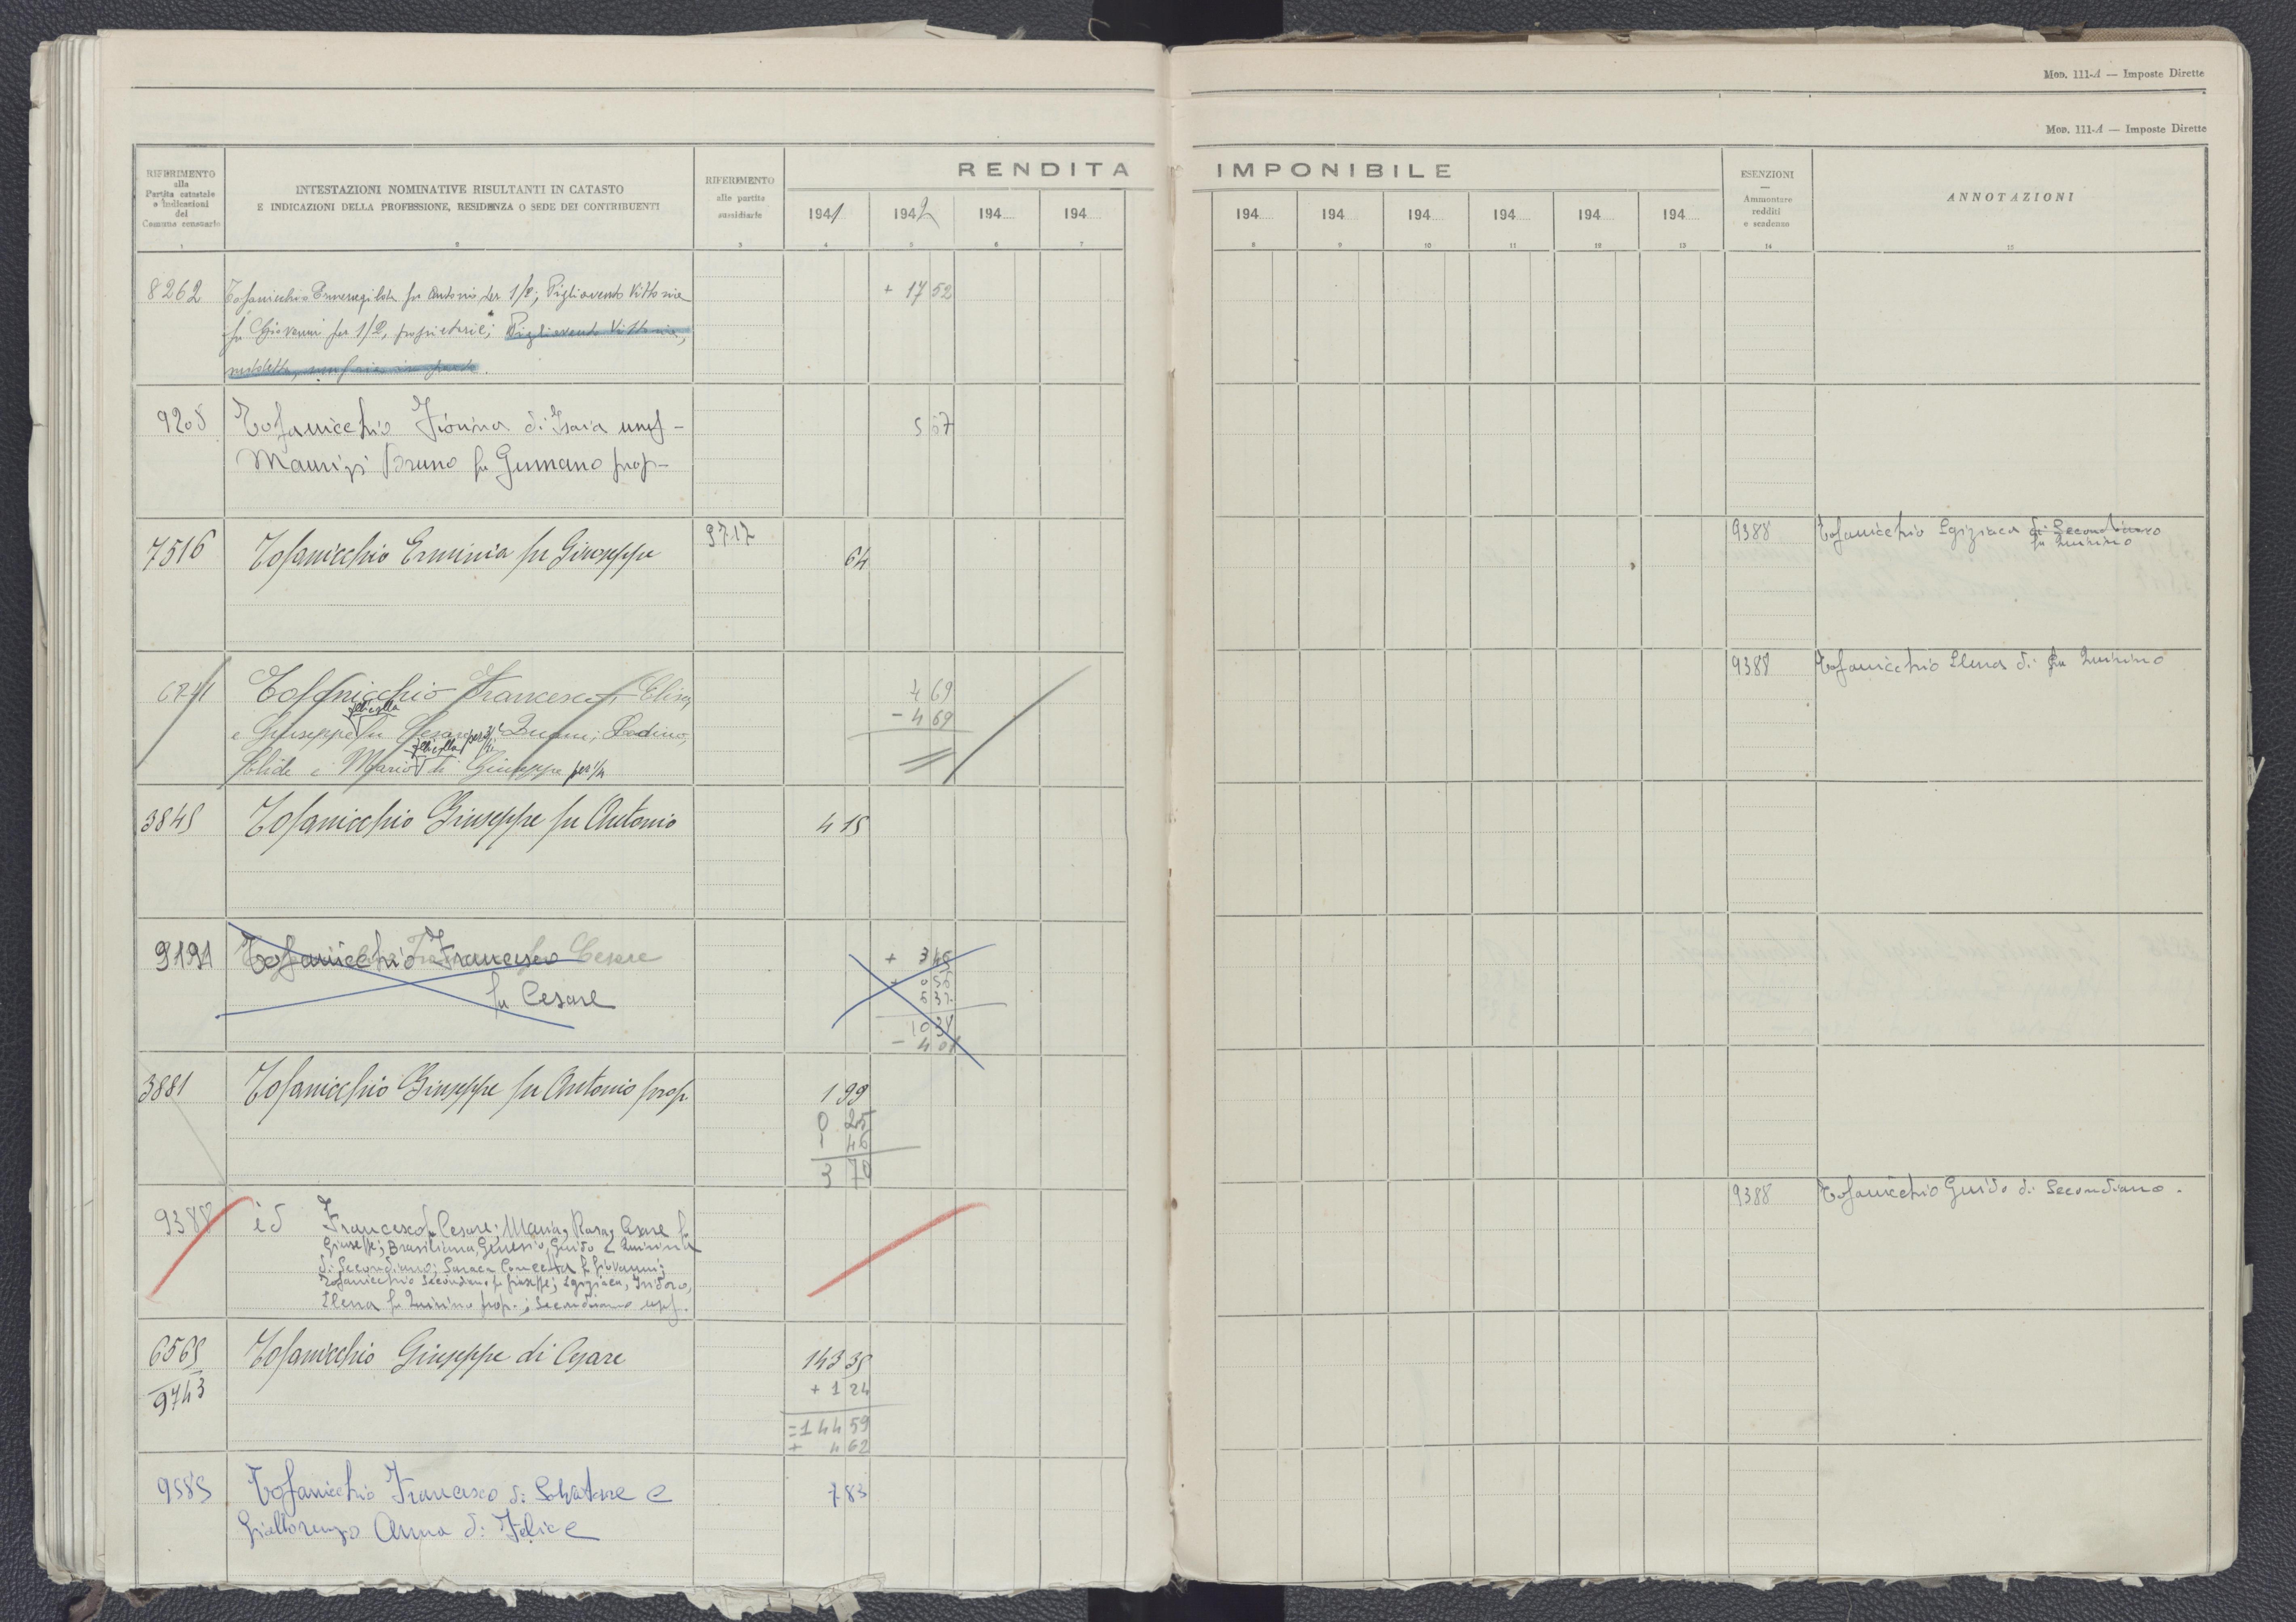 Mod. 111-A — Imposte Dirette
Mod. 111-A — Imposte Dirette
RIFERIMENTO
alla
Partita catastale
e indicazioni
del
Comune censuario
INTESTAZIONI NOMINATIVE RISULTANTI IN CATASTO
E INDICAZIONI DELLA PROFESSIONE, RESIDENZA O SEDE DEI CONTRIBUENTI
RIFERIMENTO
alle partite
sussidiarie
RENDITA IMPONIBILE
ESENZIONI
—
Ammontare
redditi
e scadenza
ANNOTAZIONI
1941 1942 194 194 194 194 194 194 194 194
1 2 3 4 5 6 7 8 9 10 11 12 13 14 15
8262 Tofanicchio Ermenegilda fu Antonio per 1/2; Pigliavento Vittoria + 17 52
fu Giovanni per 1/2, proprietarie; Pigliavento Vittoria,
9205 Tofanicchio Fiorina di Isaia usuf - 5 57
Maurizi Bruno fu Germano prop-
7516 Tofanicchio Erminia fu Giuseppe 9717 64
9388 Tofanicchio Egiziaca di Secondiano
fu Quirino
Tofanicchio Francesco, Elisa, 4 69
e Giuseppe fu Cesare per 3/4 - 4 69
Elide e Mario di Giuseppe per 1/4
9388 Tofanicchio Elena di fu Quirino
3845 Tofanicchio Giuseppe fu Antonio 4 15
9191 Tofanicchio Francesco Cesare + 3 45
fu Cesare
10 38
- 4 01
3881 Tofanicchio Giuseppe fu Antonio prop. 1 99
0 25
1 46
3 70
9388 id Francesco fu Cesare; Maria, Rosa, Cesare fu
Giuseppe; Brasiliana, Genesio, Guido e Quirino
di Secondiano; Saraca Concetta fu Giovanni;
Tofanicchio Secondiano fu Giuseppe; Egiziaca, Isidoro,
Elena fu Quirino prop.; Secondiano usuf.
9388 Tofanicchio Guido di Secondiano.
6565 Tofanicchio Giuseppe di Cesare 143 35
9743 + 1 24
= 144 59
+ 4 62
9585 Tofanicchio Francesco di Salvatore e 7 83
Giallorenzo Anna di Felice